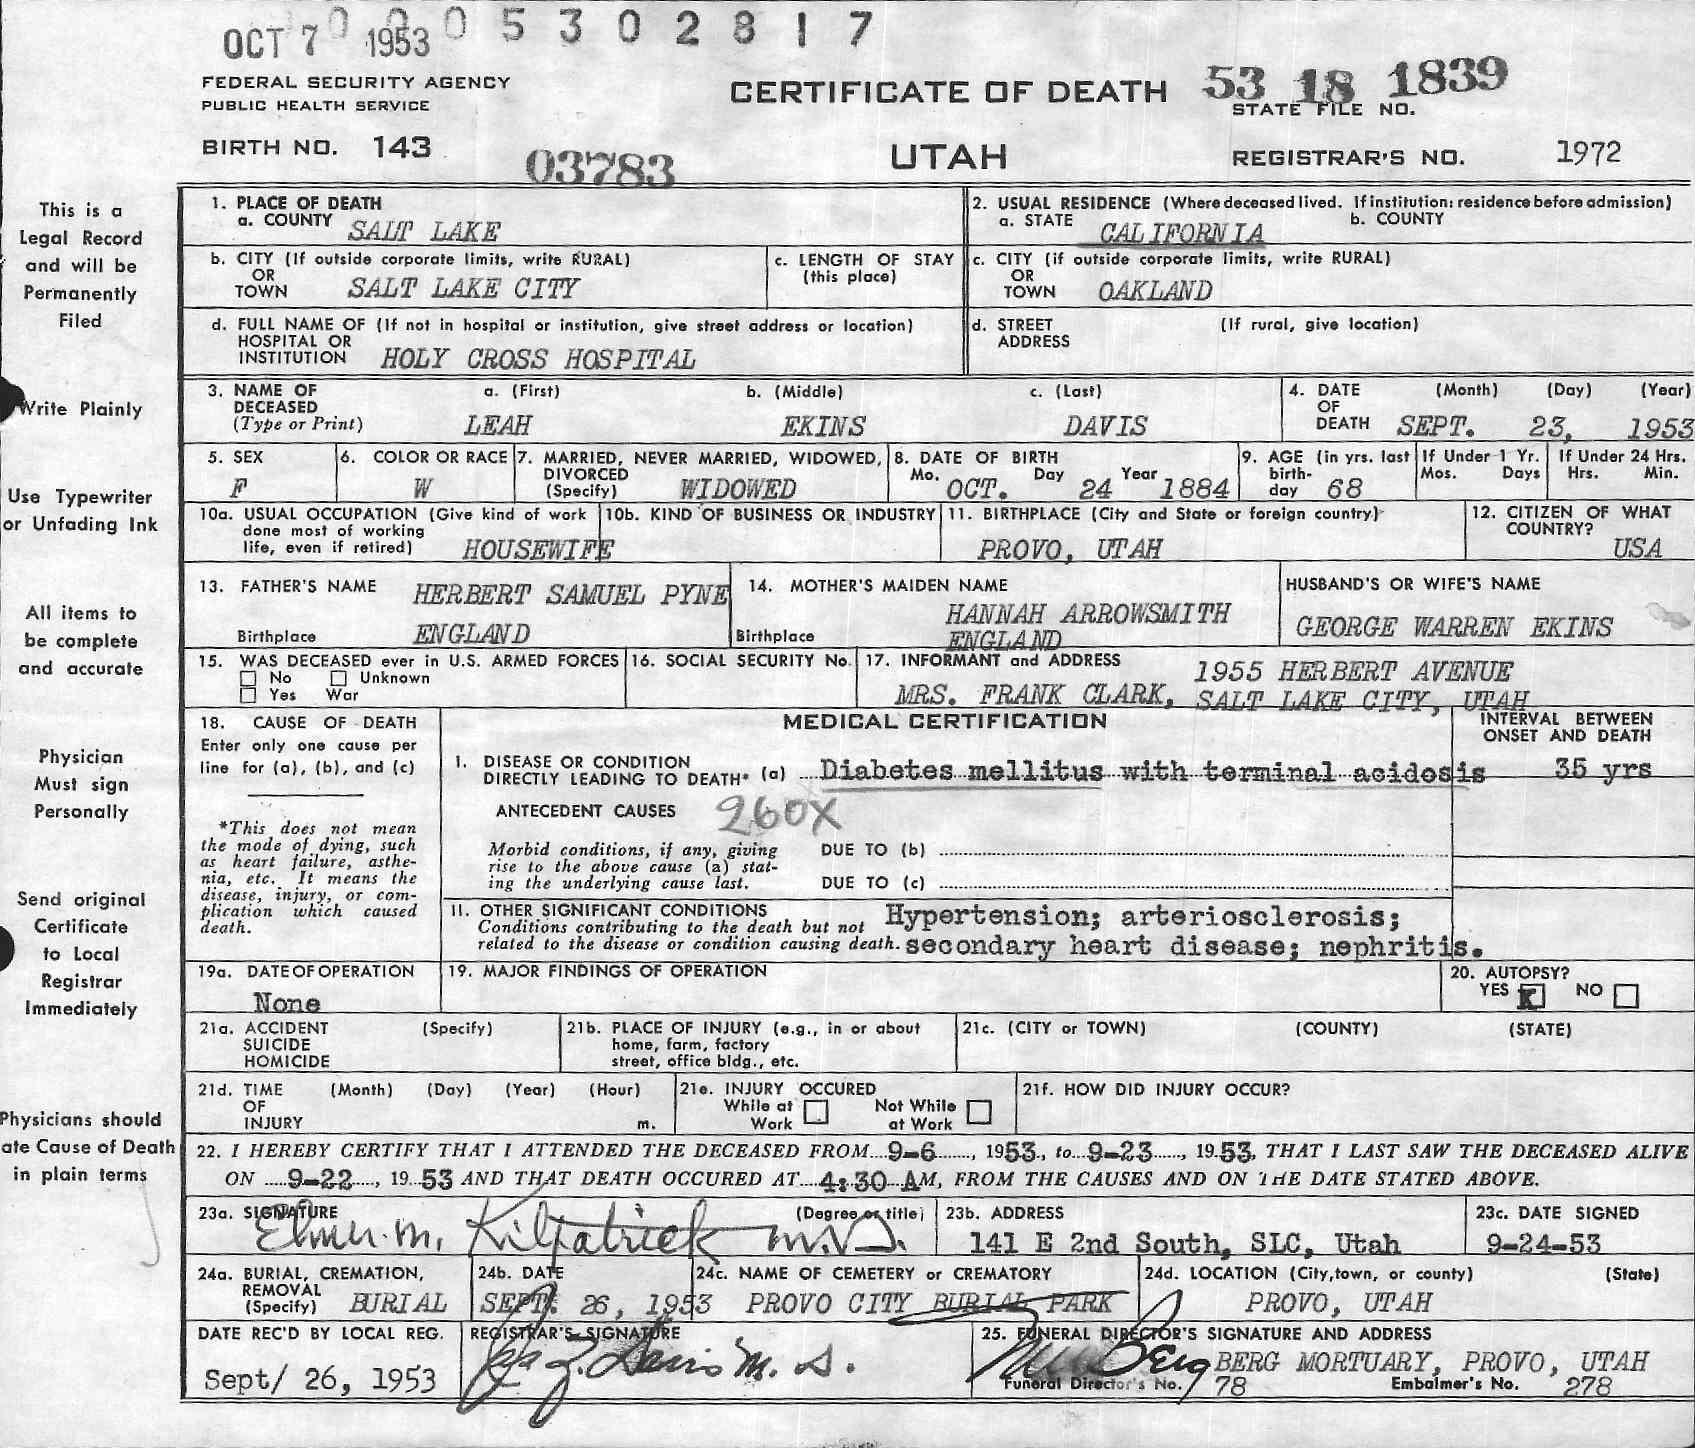 OCT 7 1953
0005302817
FEDERAL SECURITY AGENCY
PUBLIC HEALTH SERVICE
CERTIFICATE OF DEATH
53 18 1839
STATE FILE NO.
BIRTH NO. 143
03783
UTAH
REGISTRAR'S NO. 1972
This is a
Legal Record
and will be
Permanently
Filed
Write Plainly
Use Typewriter
or Unfading Ink
All items to
be complete
and accurate
Physician
Must sign
Personally
Send original
Certificate
to Local
Registrar
Immediately
Physicians should
ate Cause of Death
in plain terms
1. PLACE OF DEATH
a. COUNTY SALT LAKE
2. USUAL RESIDENCE (Where deceased lived. If institution: residence before admission)
a. STATE CALIFORNIA b. COUNTY
b. CITY (If outside corporate limits, write RURAL)
OR
TOWN SALT LAKE CITY
c. LENGTH OF STAY
(this place)
c. CITY (if outside corporate limits, write RURAL)
OR
TOWN OAKLAND
d. FULL NAME OF (If not in hospital or institution, give street address or location)
HOSPITAL OR
INSTITUTION HOLY CROSS HOSPITAL
d. STREET (If rural, give location)
ADDRESS
3. NAME OF a. (First) b. (Middle) c. (Last)
DECEASED
(Type or Print) LEAH EKINS DAVIS
4. DATE (Month) (Day) (Year)
OF
DEATH SEPT. 23, 1953
5. SEX
F
6. COLOR OR RACE
W
7. MARRIED, NEVER MARRIED, WIDOWED,
DIVORCED
(Specify) WIDOWED
8. DATE OF BIRTH
Mo. Day Year
OCT. 24 1884
9. AGE (in yrs. last
birth-
day 68
If Under 1 Yr.
Mos. Days
If Under 24 Hrs.
Hrs. Min.
10a. USUAL OCCUPATION (Give kind of work
done most of working
life, even if retired) HOUSEWIFE
10b. KIND OF BUSINESS OR INDUSTRY
11. BIRTHPLACE (City and State or foreign country)
PROVO, UTAH
12. CITIZEN OF WHAT
COUNTRY?
USA
13. FATHER'S NAME HERBERT SAMUEL PYNE
Birthplace ENGLAND
14. MOTHER'S MAIDEN NAME
HANNAH ARROWSMITH
Birthplace ENGLAND
HUSBAND'S OR WIFE'S NAME
GEORGE WARREN EKINS
15. WAS DECEASED ever in U.S. ARMED FORCES
No Unknown
Yes War
16. SOCIAL SECURITY No.
17. INFORMANT and ADDRESS 1955 HERBERT AVENUE
MRS. FRANK CLARK, SALT LAKE CITY, UTAH
18. CAUSE OF DEATH
Enter only one cause per
line for (a), (b), and (c)
*This does not mean
the mode of dying, such
as heart failure, asthe-
nia, etc. It means the
disease, injury, or com-
plication which caused
death.
MEDICAL CERTIFICATION
INTERVAL BETWEEN
ONSET AND DEATH
1. DISEASE OR CONDITION
DIRECTLY LEADING TO DEATH* (a) Diabetes mellitus with terminal acidosis 35 yrs
ANTECEDENT CAUSES 260X
Morbid conditions, if any, giving
rise to the above cause (a) stat-
ing the underlying cause last.
DUE TO (b)
DUE TO (c)
11. OTHER SIGNIFICANT CONDITIONS
Conditions contributing to the death but not
related to the disease or condition causing death.
Hypertension; arteriosclerosis;
secondary heart disease; nephritis.
19a. DATE OF OPERATION
None
19. MAJOR FINDINGS OF OPERATION
20. AUTOPSY?
YES X NO
21a. ACCIDENT (Specify)
SUICIDE
HOMICIDE
21b. PLACE OF INJURY (e.g., in or about
home, farm, factory
street, office bldg., etc.
21c. (CITY or TOWN) (COUNTY) (STATE)
21d. TIME (Month) (Day) (Year) (Hour)
OF
INJURY m.
21e. INJURY OCCURED
While at Work Not While at Work
21f. HOW DID INJURY OCCUR?
22. I HEREBY CERTIFY THAT I ATTENDED THE DECEASED FROM 9-6, 1953, to 9-23, 1953, THAT I LAST SAW THE DECEASED ALIVE
ON 9-22, 1953 AND THAT DEATH OCCURED AT 4:30 AM, FROM THE CAUSES AND ON THE DATE STATED ABOVE.
23a. SIGNATURE (Degree or title)
Elmer M. Kilpatrick M.D.
23b. ADDRESS
141 E 2nd South, SLC, Utah
23c. DATE SIGNED
9-24-53
24a. BURIAL, CREMATION,
REMOVAL
(Specify) BURIAL
24b. DATE
SEPT. 26, 1953
24c. NAME OF CEMETERY or CREMATORY
PROVO CITY BURIAL PARK
24d. LOCATION (City, town, or county) (State)
PROVO, UTAH
DATE REC'D BY LOCAL REG.
Sept/ 26, 1953
REGISTRAR'S SIGNATURE
Davis M. D.
25. FUNERAL DIRECTOR'S SIGNATURE AND ADDRESS
Berg BERG MORTUARY, PROVO, UTAH
Funeral Director's No. 78 Embalmer's No. 278